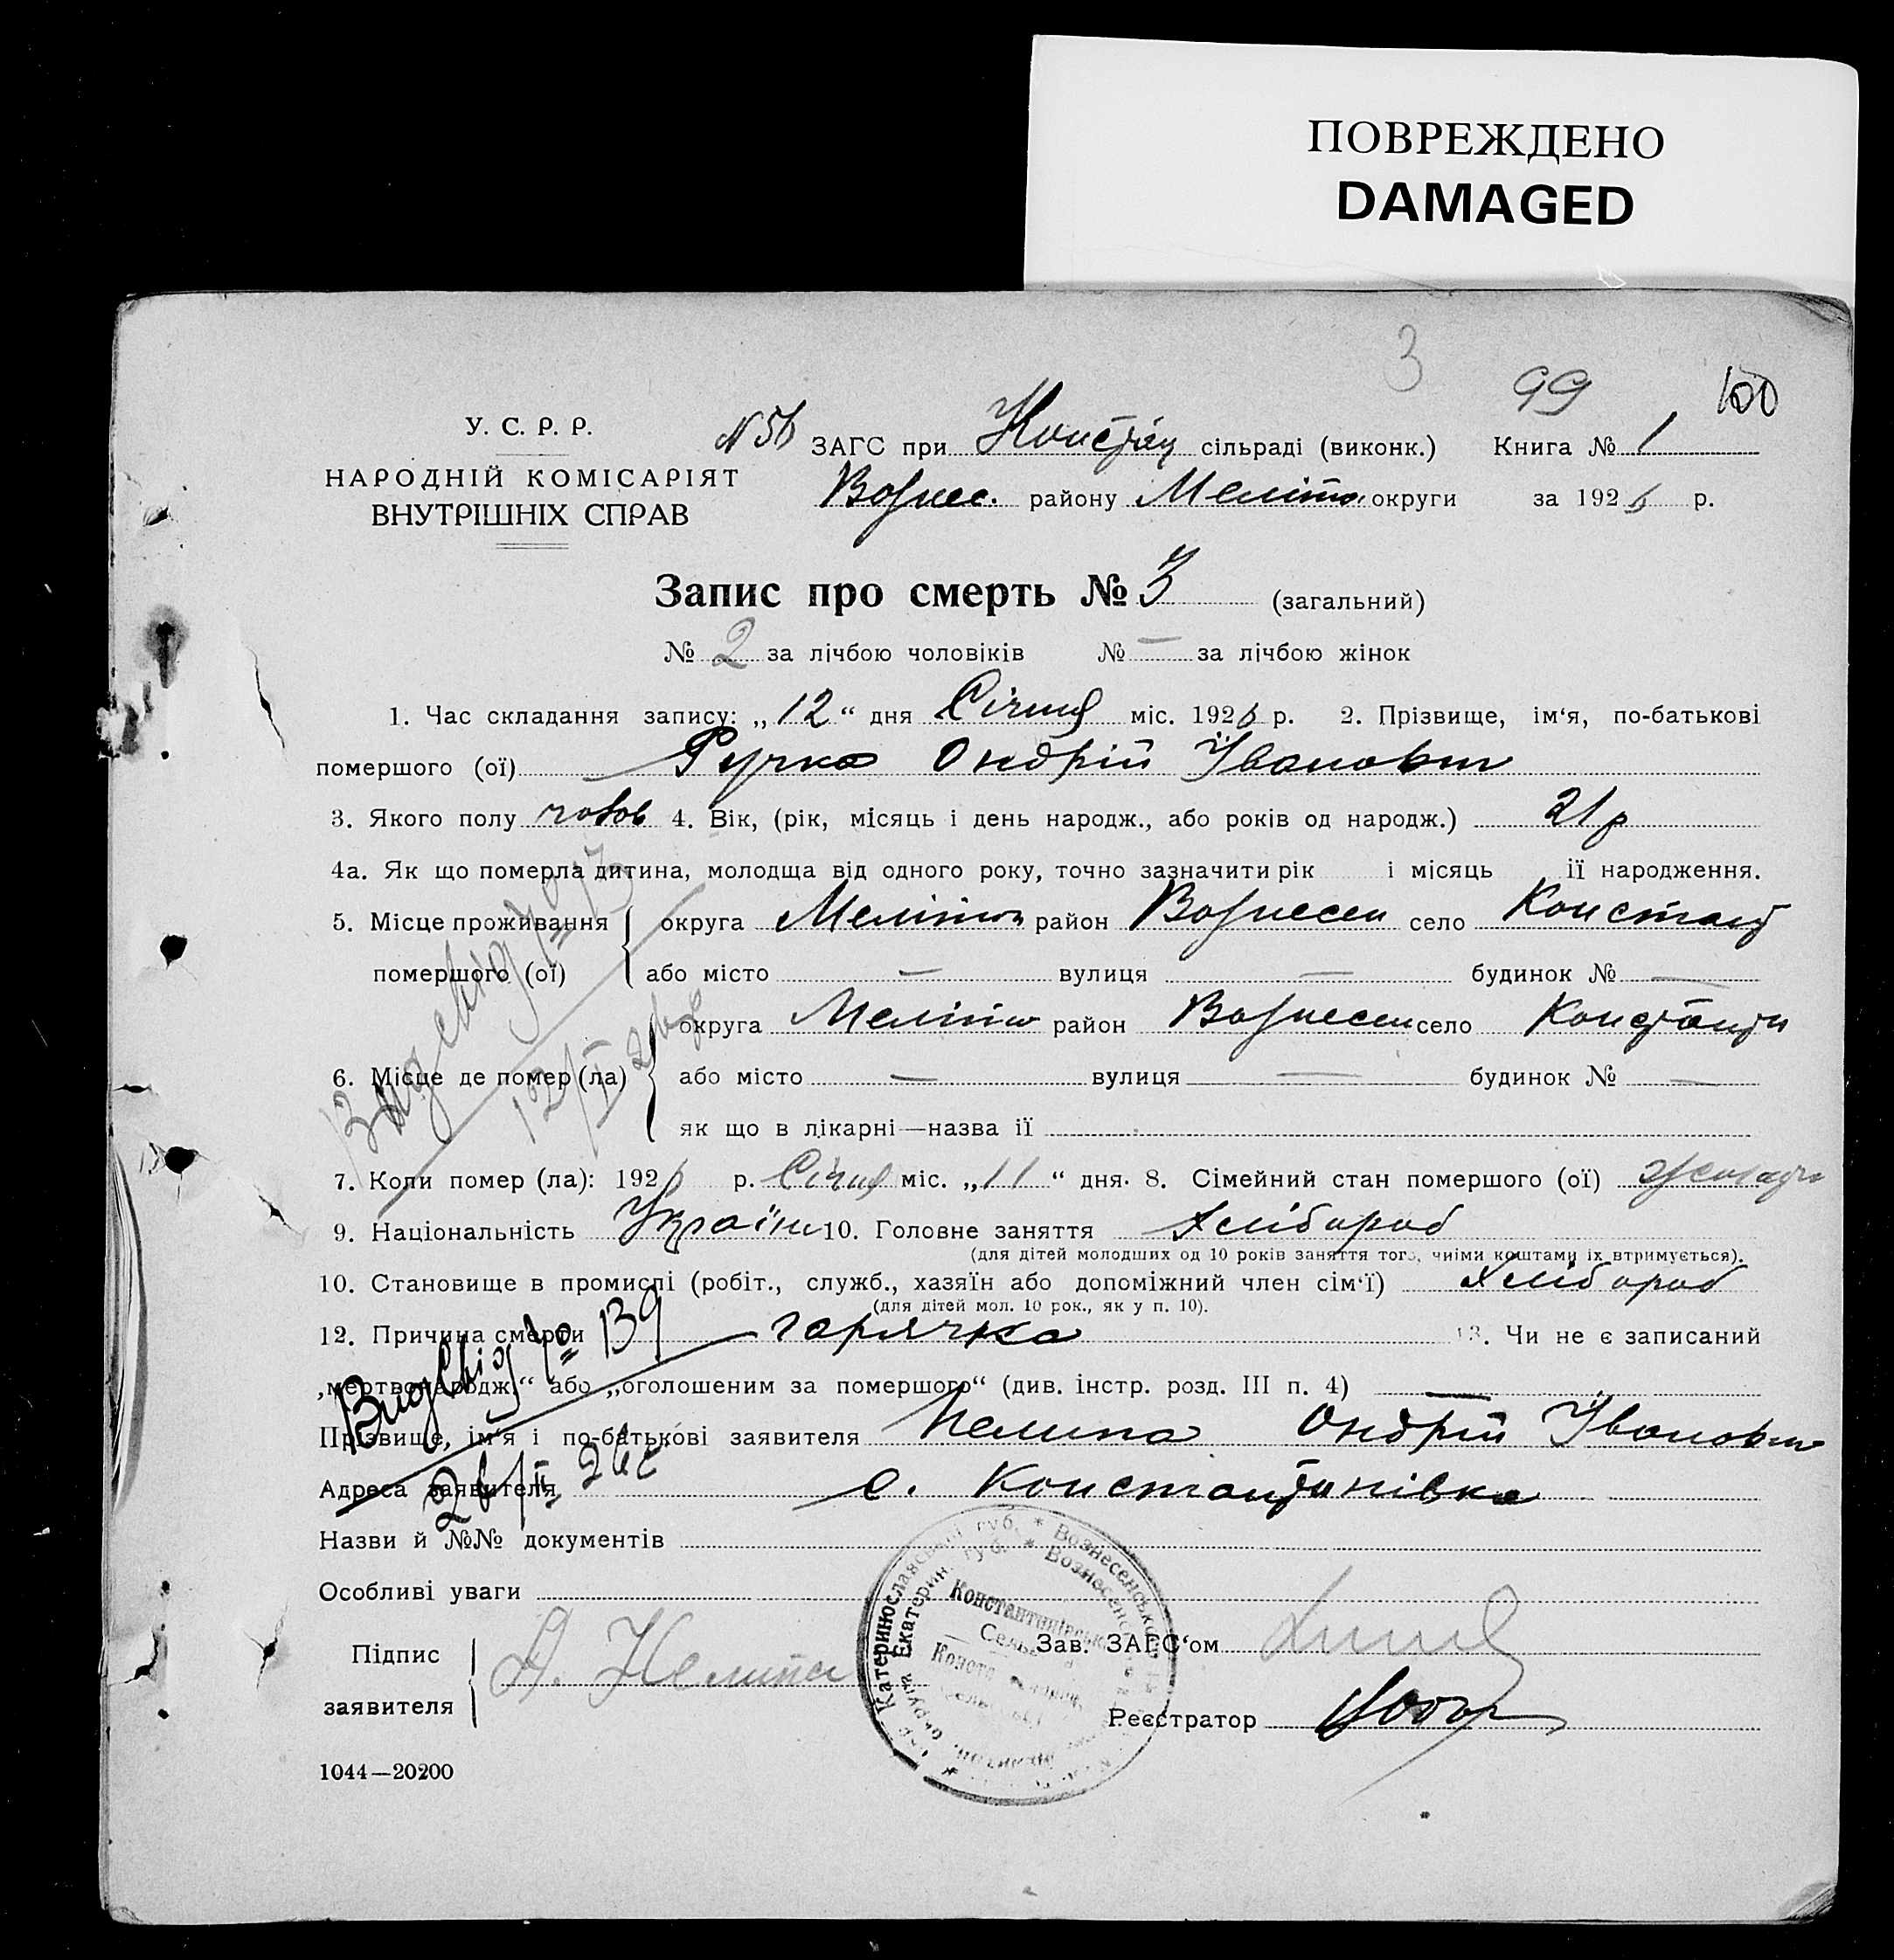 ПОВРЕЖДЕНО
DAMAGED
3 99 100
У. С. Р. Р.
НАРОДНІЙ КОМІСАРІЯТ
ВНУТРІШНІХ СПРАВ
ЗАГС при Констан сільраді (виконк.) Книга № 1
Вознес. району Меліто. округи за 1926 р.
Запис про смерть № 3 (загальний)
№ 2 за лічбою чоловіків № — за лічбою жінок
1. Час складання запису: „12“ дня Січня міс. 1926 р. 2. Прізвище, ім‘я, по-батькові
помершого (ої) Ручка Ондрій Іванович
3. Якого полу чолов 4. Вік, (рік, місяць і день народж., або років од народж.) 21 р
4а. Як що померла дитина, молодща від одного року, точно зазначити рік і місяць її народження.
5. Місце проживання помершого (ої) округа Меліто район Вознесен село Констант
або місто — вулиця — будинок № —
6. Місце де помер (ла) округа Меліто район Вознесен село Константи
або місто — вулиця — будинок № —
як що в лікарні—назва ії
7. Коли помер (ла): 1926 р. Січня міс. „11“ дня. 8. Сімейний стан помершого (ої)
9. Національність Україн 10. Головне заняття Хлібороб
(для дітей молодших од 10 років заняття того, чиїми коштами їх втримується).
10. Становище в промислі (робіт., служб., хазяїн або допоміжний член сім‘ї) Хлібороб
(для дітей мол. 10 рок., як у п. 10).
12. Причина смерти горячка 13. Чи не є записаний
„мертвонародж.“ або „оголошеним за помершого“ (див. інстр. розд. III п. 4) —
Прізвище, ім‘я і по-батькові заявителя Нелипа Ондрій Іванович
Адреса заявителя с. Константинівка
Назви й №№ документів
Особливі уваги
Підпис заявителя А. Нелипа
Зав. ЗАГС‘ом
Реєстратор
1044—20200